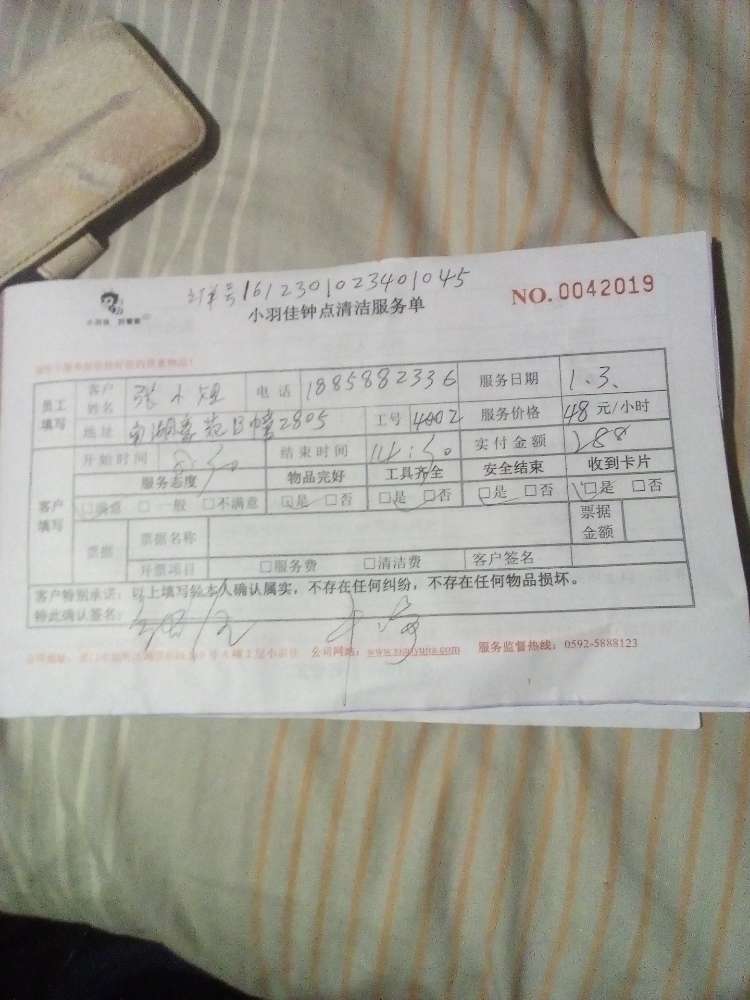 订单号161230102340 1045
小羽佳钟点清洁服务单
NO. 0042019
员工填写 客户姓名 张小姐 电话 1885882336 服务日期 1.3.
地址 2805 工号 4002 服务价格 48 元/小时
开始时间 8:30 结束时间 14:30 实付金额 288
客户填写 服务态度 物品完好 工具齐全 安全结束 收到卡片
□满意 □一般 □不满意 □是 □否 □是 □否 □是 □否 □是 □否
票据 票据名称 票据金额
开票项目 □服务费 □清洁费 客户签名
客户特别承诺：以上填写经本人确认属实，不存在任何纠纷，不存在任何物品损坏。
特此确认签名：
公司网站：www.xiaoyujia.com 服务监督热线：0592-5888123